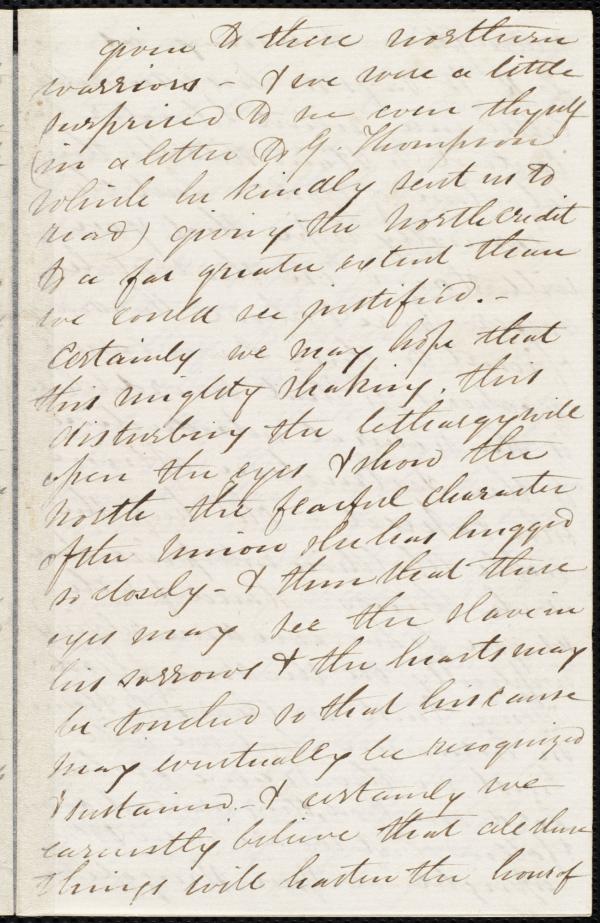 given to these northern
warriors - & we were a little
surprised to see even thyself
(in a letter to G. Thompson
which he kindly sent us to
read) giving the North credit
to a far greater extent than
we could see justified. -
Certainly we may hope that
this mighty shaking, this
disturbing the lethargy will
open the eyes & show the
North the fearful character
of the Union she has hugged
so closely - & then that these
eyes may see the slave in
his sorrows & the hearts may
be touched so that his cause
may eventually be recognized
& sustained. - & certainly we
earnestly believe that all these
things will hasten the hour of